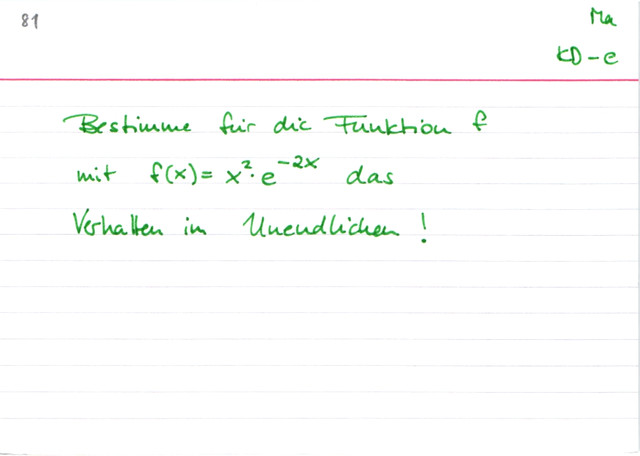 81
Ma
KD-e
Bestimme für die Funktion f
mit f(x) = x²·e^{-2x} das
Verhalten im Unendlichen!